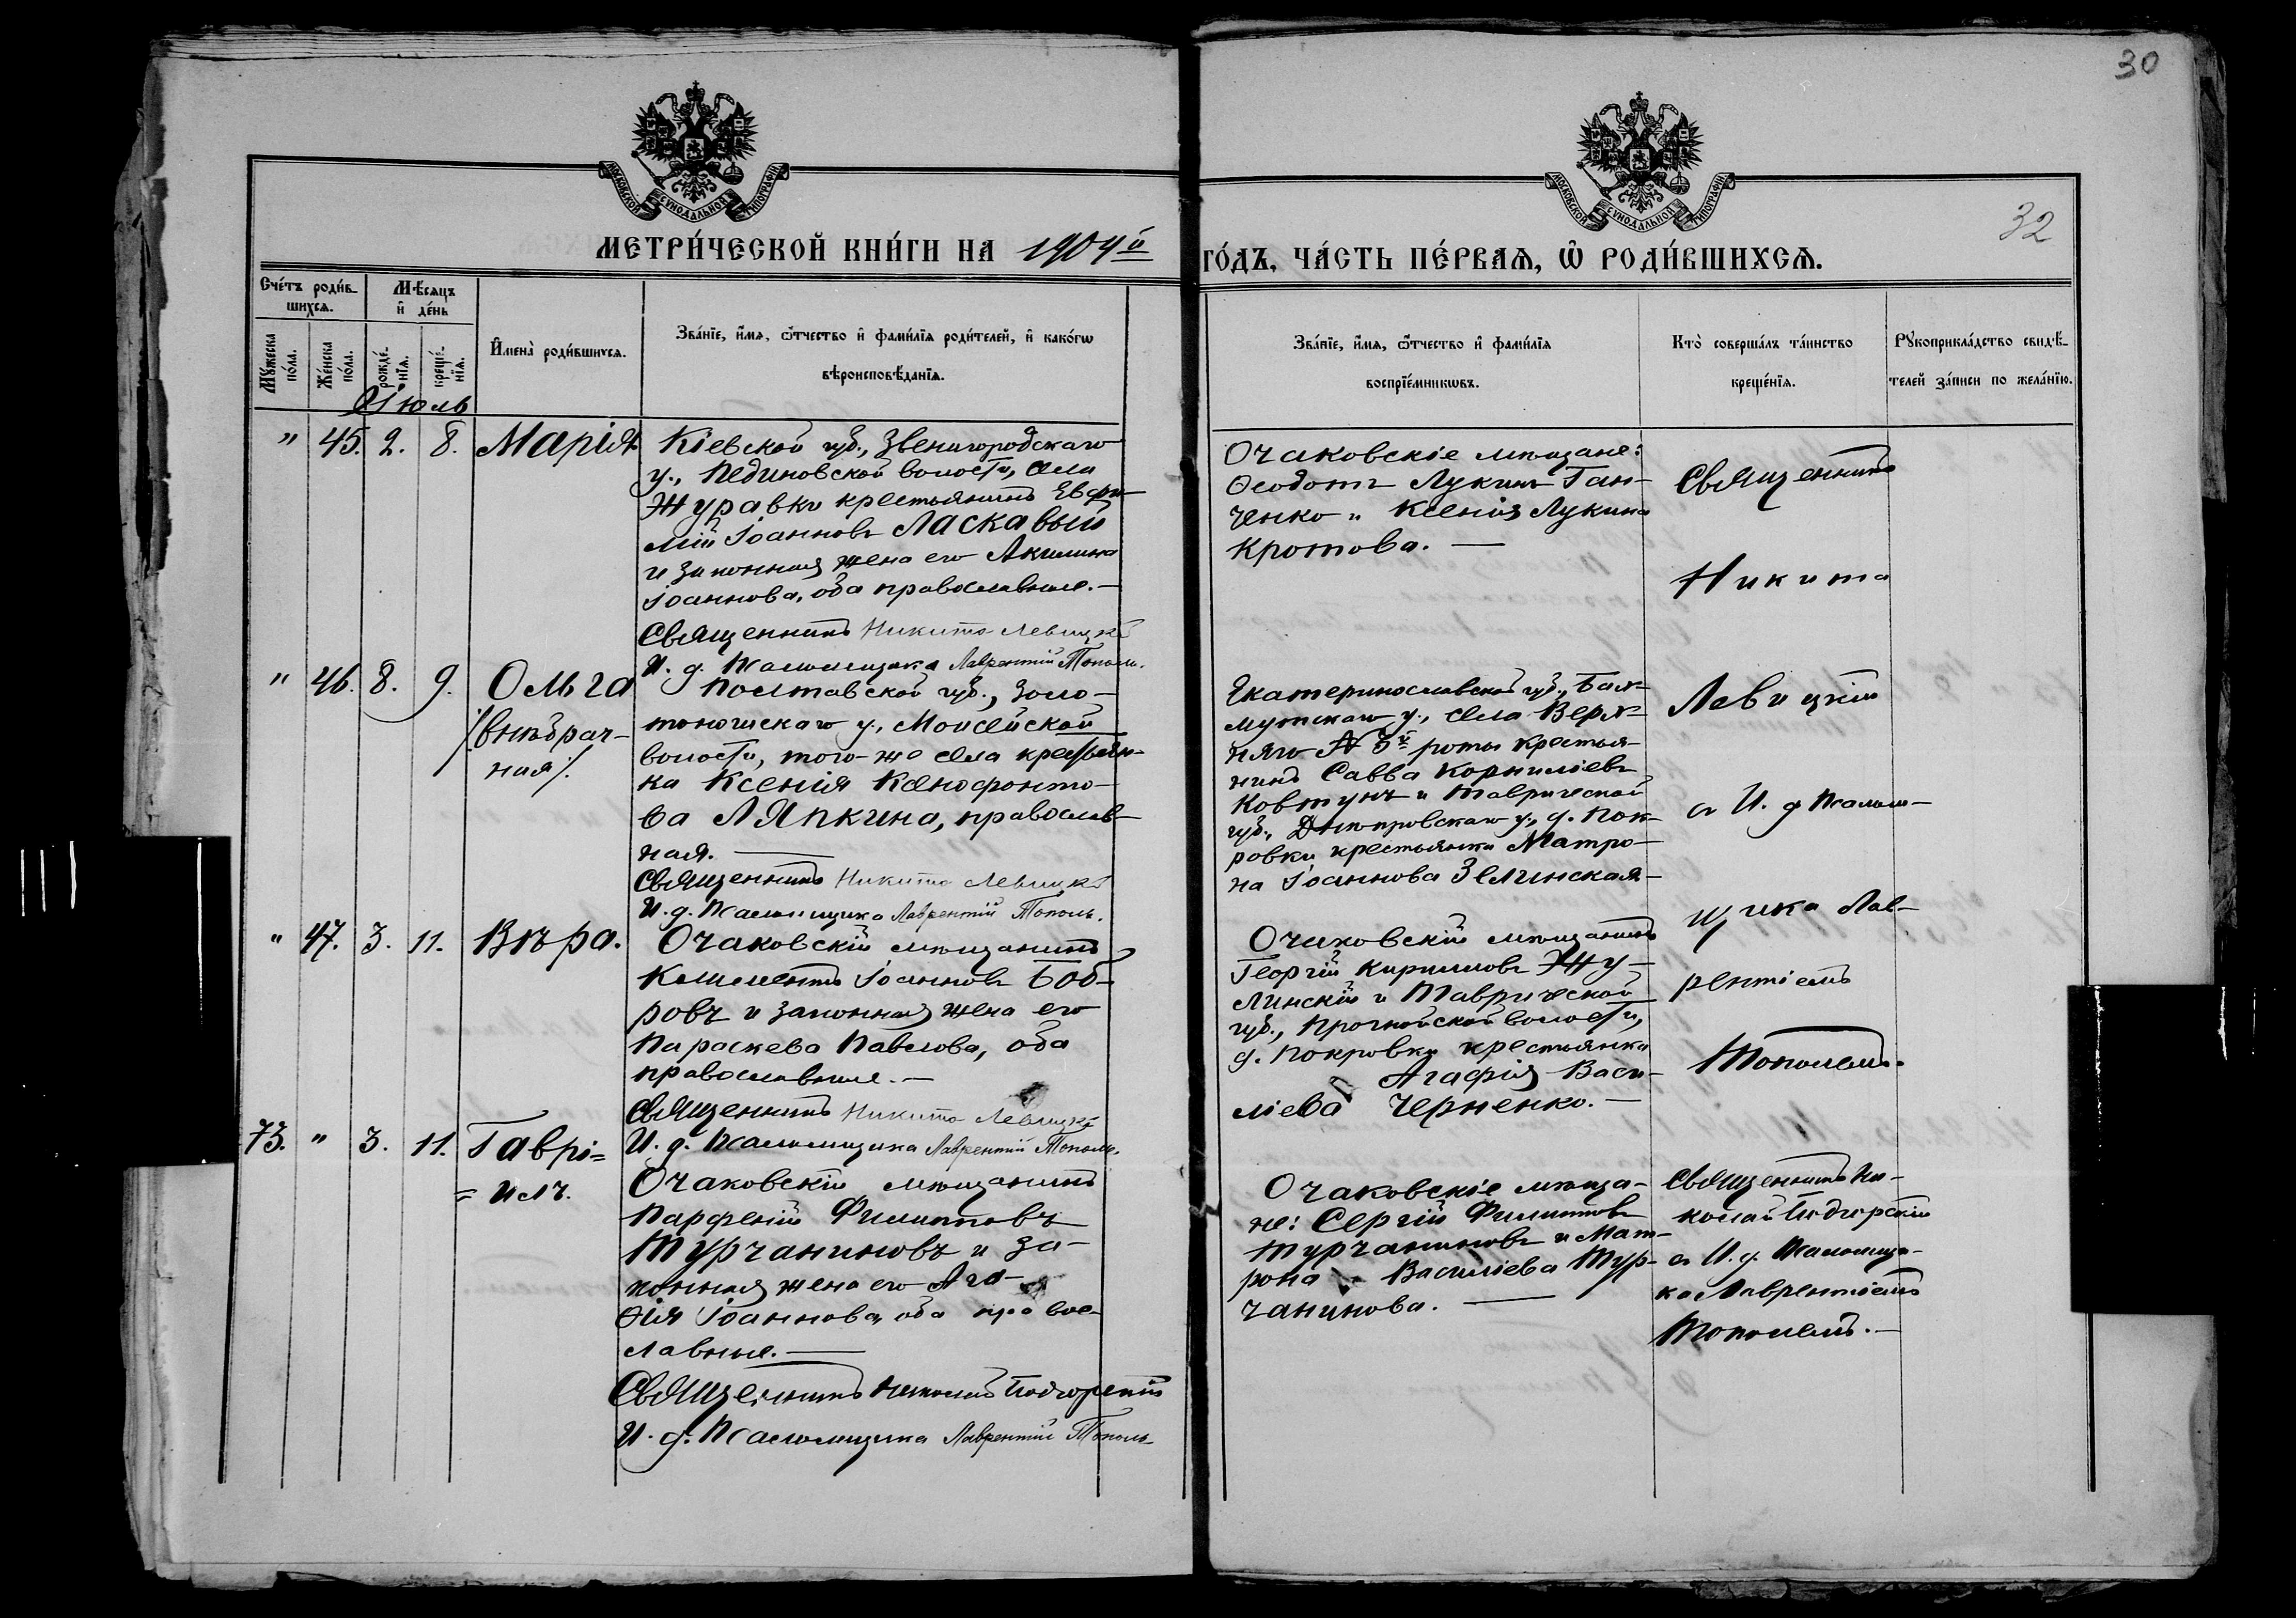 30
32
МОСКОВСКОЙ СѴНОДАЛЬНОЙ ТИПОГРАФІИ
МОСКОВСКОЙ СѴНОДАЛЬНОЙ ТИПОГРАФІИ
МЕТРИ́ЧЕСКОЙ КНИ́ГИ НА 1904й
ГО́ДЪ, ЧА́СТЬ ПЕ́РВАѦ, Ѽ РОДИ́ВШИХСѦ.
Сче́тъ роди́в-
шихсѧ.
Мѣ́сяцъ
и҆ де́нь
Мꙋ́жеска
по́ла.
Же́нска
по́ла.
рожде́-
нїѧ.
креще́-
нїѧ.
И҆мена̀ роди́вшихсѧ.
Зва́нїе, и҆́мѧ, ѻ҆́тчество и҆ фами́лїѧ роди́телей, и҆ како́гѡ
вѣроисповѣ́данїѧ.
Зва́нїе, и҆́мѧ, ѻ҆́тчество и҆ фами́лїѧ
воспрїе́мникѡвъ.
Кто̀ соверша́лъ та́инство
креще́нїѧ.
Рꙋкоприкла́дство свидѣ́-
телей за́писи по жела́нїю.
Іюль
" 45. 2. 8. Марія
Кіевской губ., Звенигородскаго
у., Пединовской волости, села
Журавки крестьянинъ Евфи-
мій Іоанновъ Ласкавый
и законная жена его Акилина
Іоаннова, оба православные. —
Священникъ Никита Левицкій
И. д. Псаломщика Лаврентій Тополь.
Очаковскіе мѣщане:
Ѳеодотъ Лукинъ Ган-
ченко и Ксенія Лукина
Кротова. —
Священникъ
Никита
Левицкій
съ И. д Псалом-
щика Лав-
рентіемъ
Тополемъ.
" 46. 8. 9. Ольга
/внѣбрач-
ная/.
Полтавской губ., Золо-
тоношскаго у., Моисейской
волости, того-же села крестьян-
ка Ксенія Ксенофонто-
ва Ляпкина, православ-
ная. —
Священникъ Никита Левицкій
И. д. Псаломщика Лаврентій Тополь.
Екатеринославской губ., Бах-
мутскаго у., села Верх-
няго 3й роты крестья-
нинъ Савва Корниліевъ
Ковтунъ и Таврической
губ., Днѣпровскаго у., д. Пок-
ровки крестьянка Матро-
на Іоаннова Зелинская —
" 47. 3. 11. Вѣра.
Очаковскій мѣщанинъ
Климентъ Іоанновъ Боб-
ровъ и законная жена его
Параскева Павлова, оба
православные. —
Священникъ Никита Левицкій
И. д. Псаломщика Лаврентій Тополь.
Очаковскій мѣщанинъ
Георгій Кирилловъ Жу-
линскій и Таврической
губ., Прогнойской волости,
д. Покровки крестьянка
Агафія Васи-
ліева Черненко. —
73. " 3. 11. Гаврі=
=илъ.
Очаковскій мѣщанинъ
Парфеній Филипповъ
Турчаниновъ и за-
конная жена его Ага-
фія Іоаннова, оба право-
славные. —
Священникъ Николай Подгорскій
И. д. Псаломщика Лаврентій Тополь
Очаковскіе мѣща-
не: Сергій Филипповъ
Турчаниновъ и Мат-
рона Василіева Тур-
чанинова. —
Священникъ Ни-
колай Подгорскій
съ И. д. Псаломщи-
ка Лаврентіемъ
Тополемъ. —